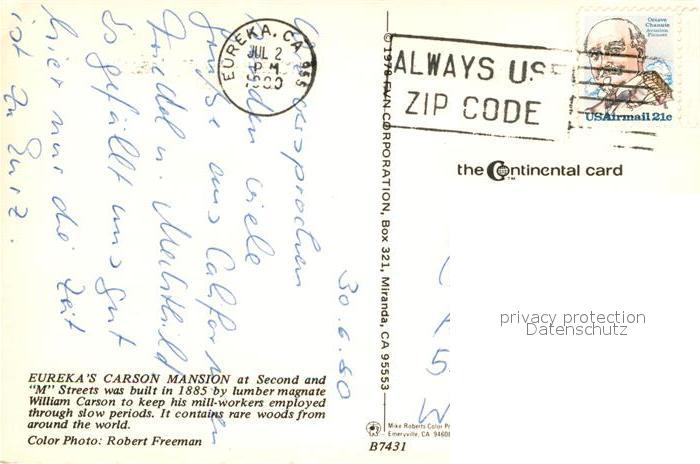 EUREKA, CA 955
JUL 2
PM
1980
ALWAYS USE
ZIP CODE
Octave
Chanute
Aviation
Pioneer
USAirmail 21c
the Continental card
© 1978 FWN CORPORATION, Box 321, Miranda, CA 95553
30.6.80
versprochen
viele
Grüße aus Californien
Friedel u. Mechthild
Es gefällt uns gut
hier nur die Zeit
ist zu kurz.
privacy protection
Datenschutz
EUREKA'S CARSON MANSION at Second and
"M" Streets was built in 1885 by lumber magnate
William Carson to keep his mill-workers employed
through slow periods. It contains rare woods from
around the world.
Color Photo: Robert Freeman
Mike Roberts Color Pr
Emeryville, CA 9460
B7431